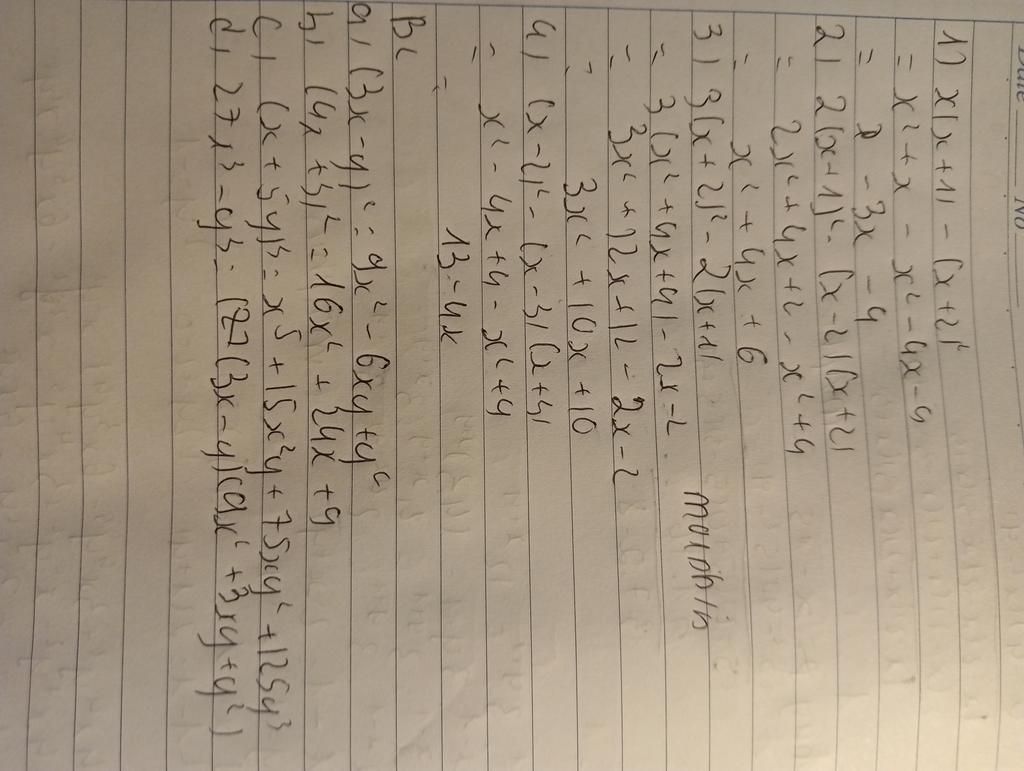 Date No
1) x(x+1) - (x+2)²
= x² + x - x² - 4x - 4
= -3x - 4
2) 2(x+1)² - (x-2)(x+2)
= 2x² + 4x + 2 - x² + 4
= x² + 4x + 6
3) 3(x+2)² - 2(x+1)
= 3(x² + 4x + 4) - 2x - 2
= 3x² + 12x + 12 - 2x - 2
= 3x² + 10x + 10
4) (x-2)² - (x-3)(x+4)
= x² - 4x + 4 - x² + 9
= 13 - 4x
a, (3x-y)² = 9x² - 6xy + y²
b, (4x + 3)² = 16x² + 24x + 9
c, (x + 5y)³ = x³ + 15x²y + 75xy² + 125y³
d, 27x³ - y³ = (27(3x-y)(9x² + 3xy + y²)